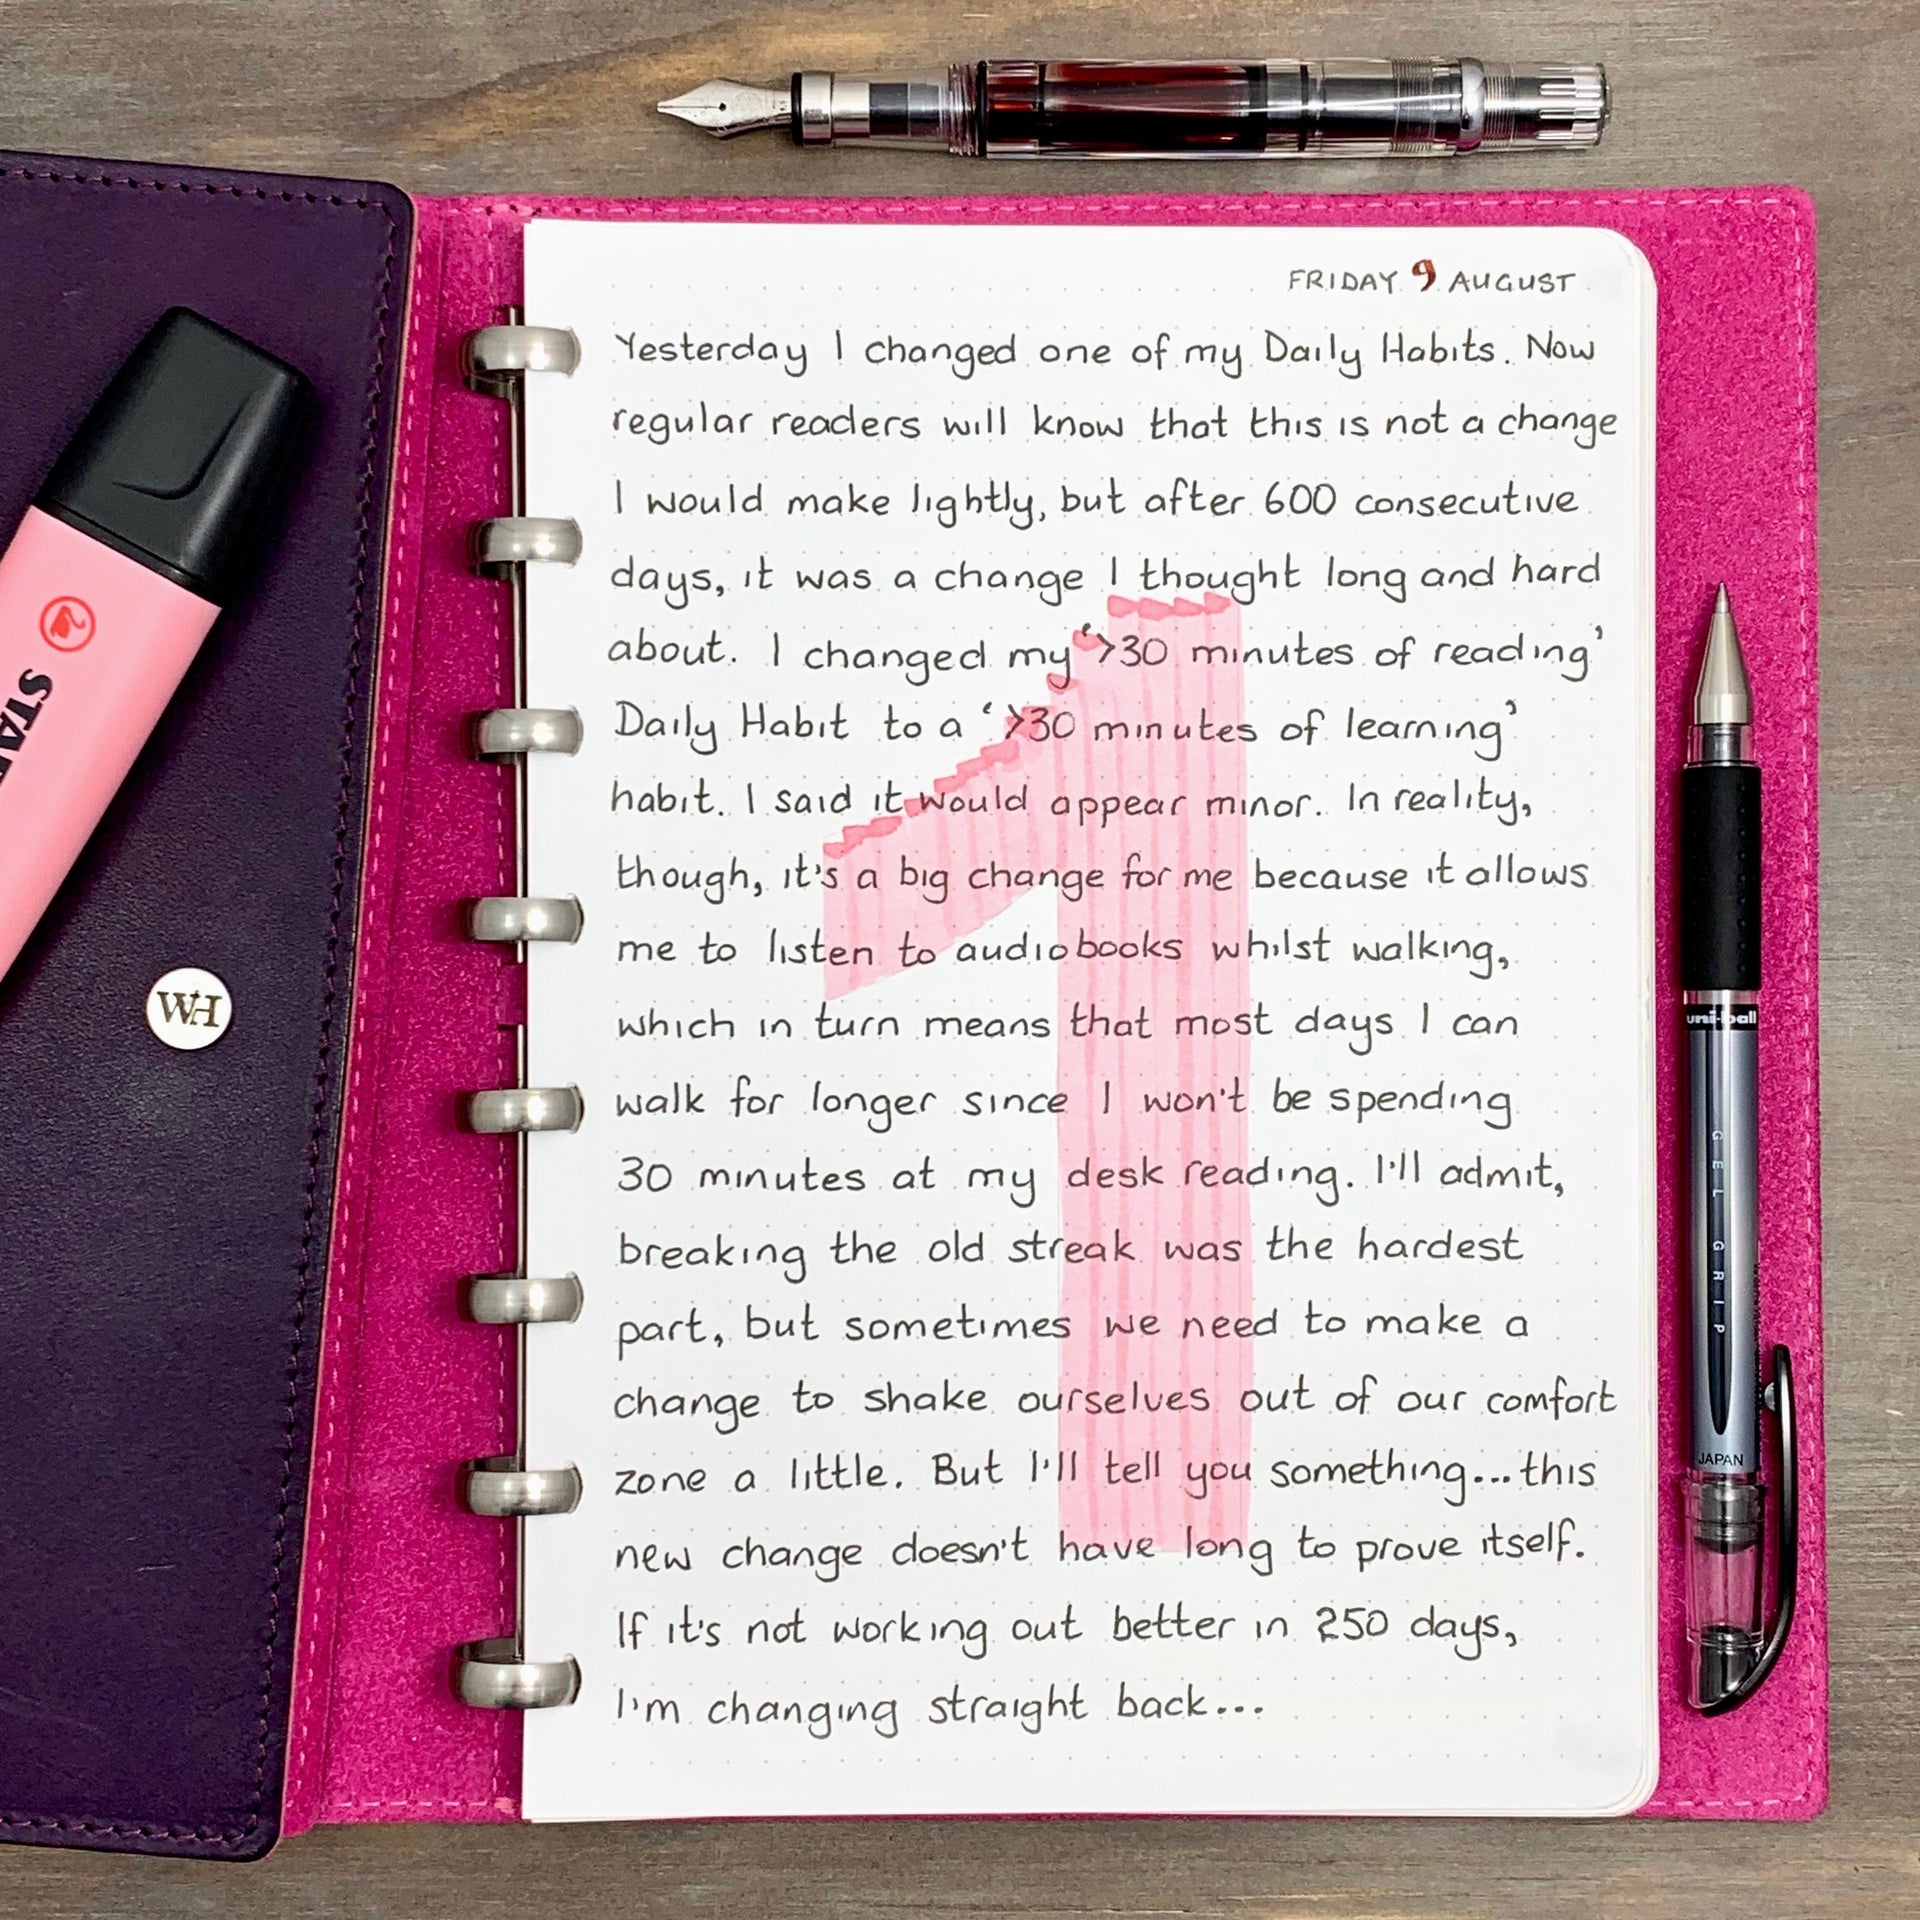 FRIDAY 9 AUGUST
Yesterday I changed one of my Daily Habits. Now
regular readers will know that this is not a change
I would make lightly, but after 600 consecutive
days, it was a change I thought long and hard
about. I changed my '>30 minutes of reading'
Daily Habit to a '>30 minutes of learning'
habit. I said it would appear minor. In reality,
though, it's a big change for me because it allows
me to listen to audiobooks whilst walking,
which in turn means that most days I can
walk for longer since I won't be spending
30 minutes at my desk reading. I'll admit,
breaking the old streak was the hardest
part, but sometimes we need to make a
change to shake ourselves out of our comfort
zone a little. But I'll tell you something...this
new change doesn't have long to prove itself.
If it's not working out better in 250 days,
I'm changing straight back...
1
STA
WH
uni-ball
GEL GRIP
JAPAN